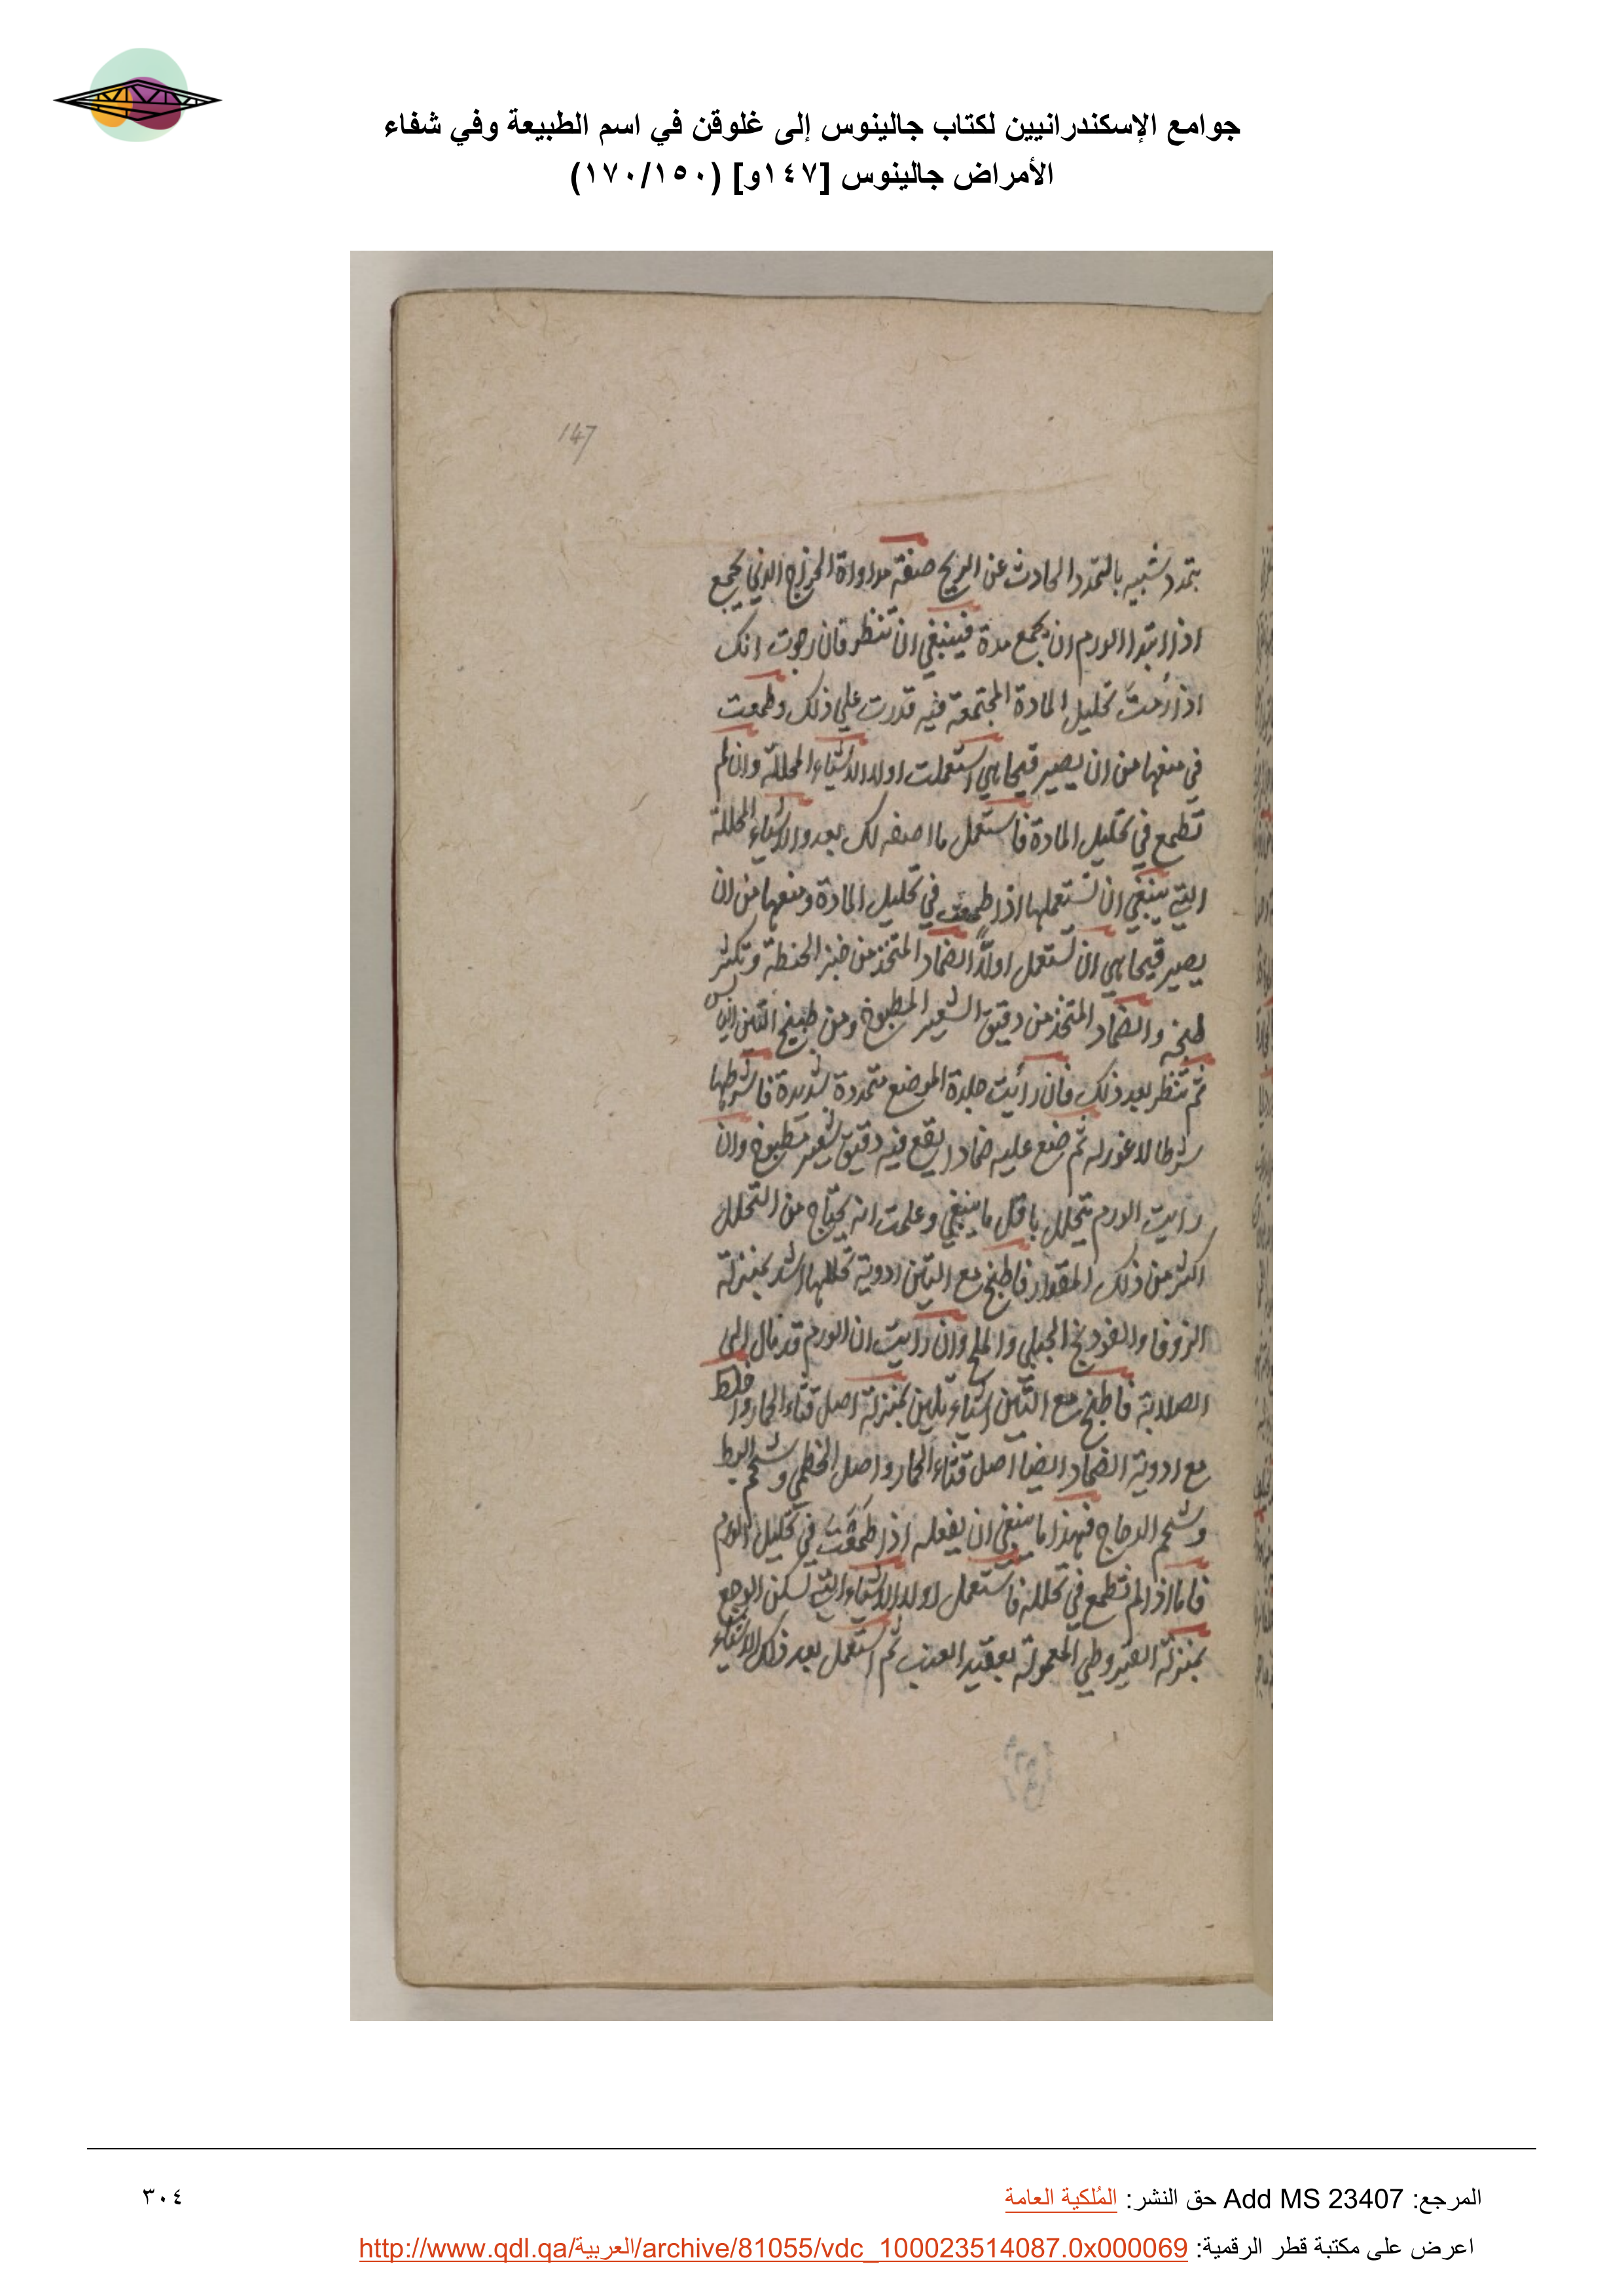 جوامع الإسكندرانيين لكتاب جالينوس إلى غلوقن في اسم الطبيعة وفي شفاء
الأمراض جالينوس [١٤٧و] (١٧٠/١٥٠)
147
بتمدد شبيه بالتمدد الحادث عن الريح صفة مداواة الخراج الذي يجمع
اذا ابتدا الورم ان يجمع مدة فينبغي ان تنظر فان رجوت انك
اذا رُمتَ تحليل المادة المجتمعة فيه قدرت علي ذلك وطمعت
في منعها من ان يصير قيحا هي استعملت اولا الاشياء المحللة وان لم
تطمع في تحليل المادة فاستعمل ما اصفه لك بعد والاشياء المحللة
التي ينبغي ان تستعملها اذا طمعت في تحليل المادة ومنعها من ان
يصير قيحا هي ان تستعمل اولًا الضماد المتخذ من خبز الحنطة وتكثر
طبخه والضماد المتخذ من دقيق الشعير المطبوخ ومن طبيخ التين اليابس
ثم تنظر بعد ذلك فان رأيت جلدة الموضع متمددة شديدة فاشرطها
شرطا لا غور له ثم ضع عليه ضمادا يقع فيه دقيق شعير مطبوخ وان
رايت الورم يتحلل باقل ما ينبغي وعلمت انه يحتاج من التحلل
اكثر من ذلك المقدار فاطبخ مع التين ادوية تحللها اشد بمنزلة
الزوفا والفودنج الجبلي والملح وان رايت ان الورم قد مال الى
الصلابة فاطبخ مع التين اشياء تلين بمنزلة اصل قثاء الحمار واخلط
مع ادوية الضماد ايضا اصل قثاء الحمار واصل الخطمي وشحم البط
وشحم الدجاج فهذا ما ينبغي ان يفعله اذا طَمَعَت في تحليل الورم
فاما اذا لم تطمع في تحلله فاستعمل اولا الاشياء التي تسكن الوجع
بمنزلة القيروطي المعمولة بعقيد العنب ثم استعمل بعد ذلك الاشياء
المرجع: Add MS 23407 حق النشر: المُلكية العامة
٣٠٤
اعرض على مكتبة قطر الرقمية: http://www.qdl.qa/العربية/archive/81055/vdc_100023514087.0x000069